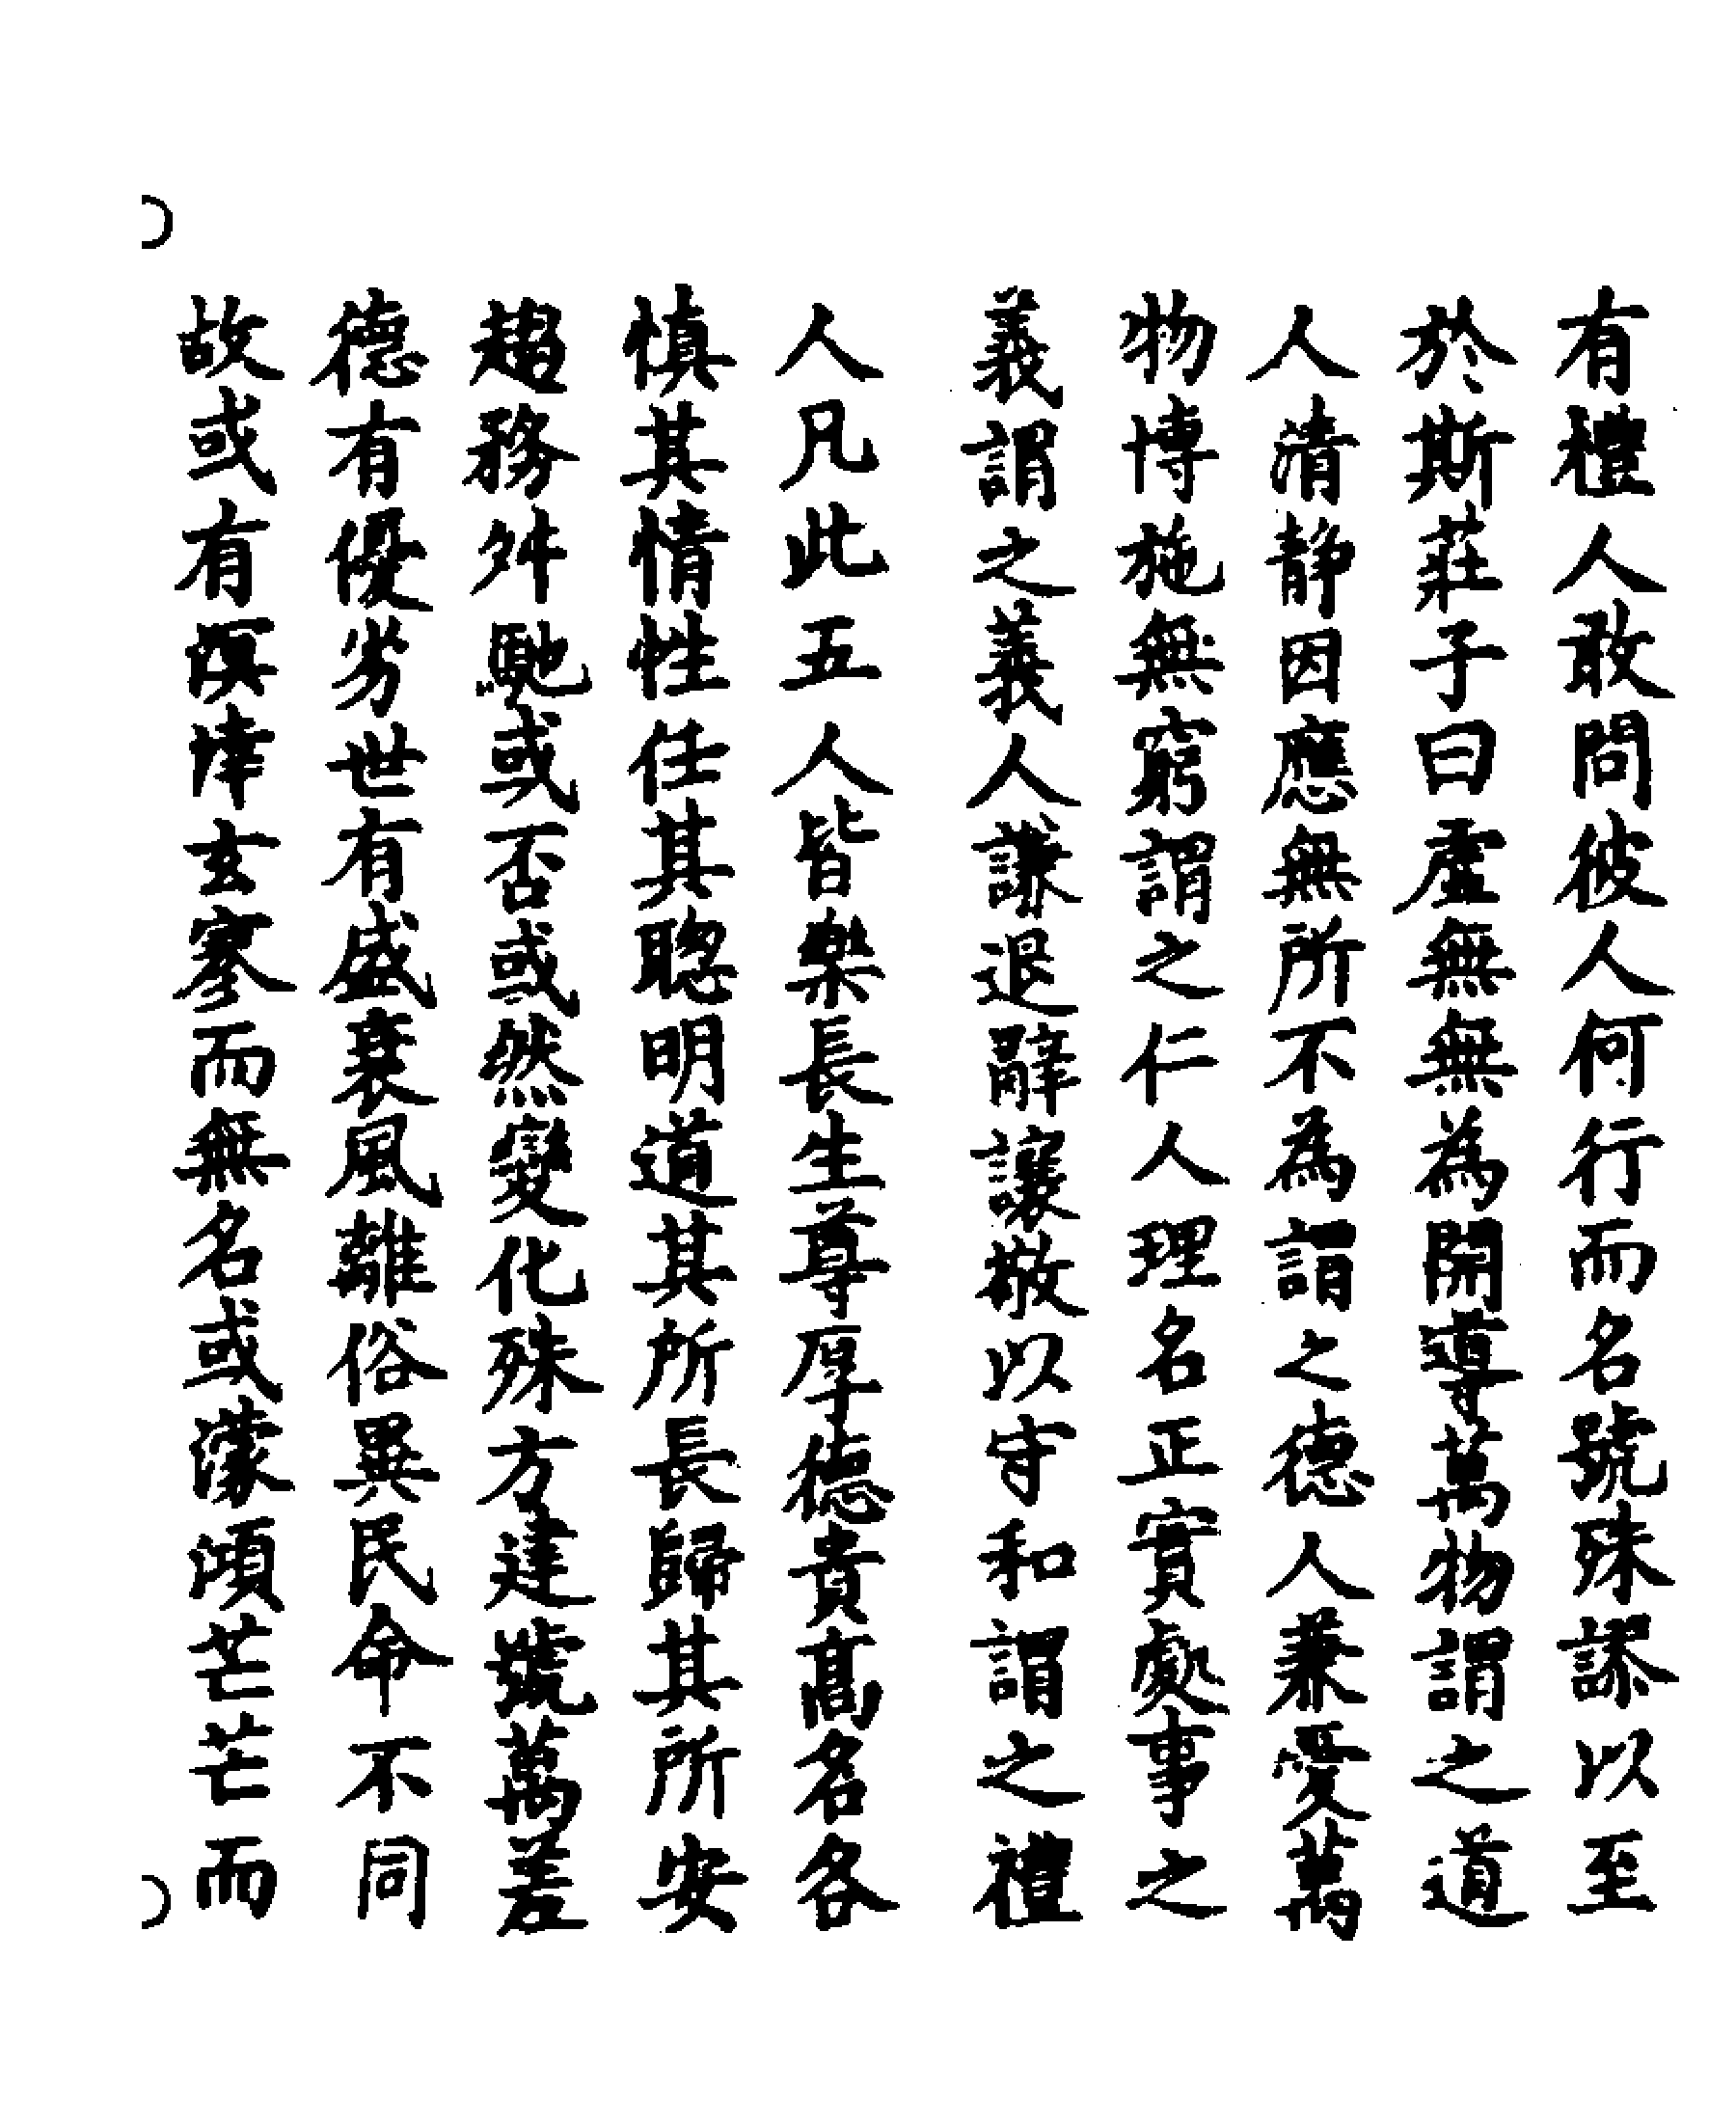 有禮人敢問彼人何行而名號殊謬以至
於斯莊子曰虛無無為開導萬物謂之道
人清靜因應無所不為謂之德人兼愛萬
物博施無窮謂之仁人理名正實處事之
義謂之義人謙退辭讓敬以守和謂之禮
人凡此五人皆樂長生尊厚德貴高名各
慎其情性任其聰明道其所長歸其所安
趨務舛馳或否或然變化殊方建號萬差
德有優劣世有盛衰風離俗異民命不同
故或有溟涬玄寥而無名或濛澒芒芒而